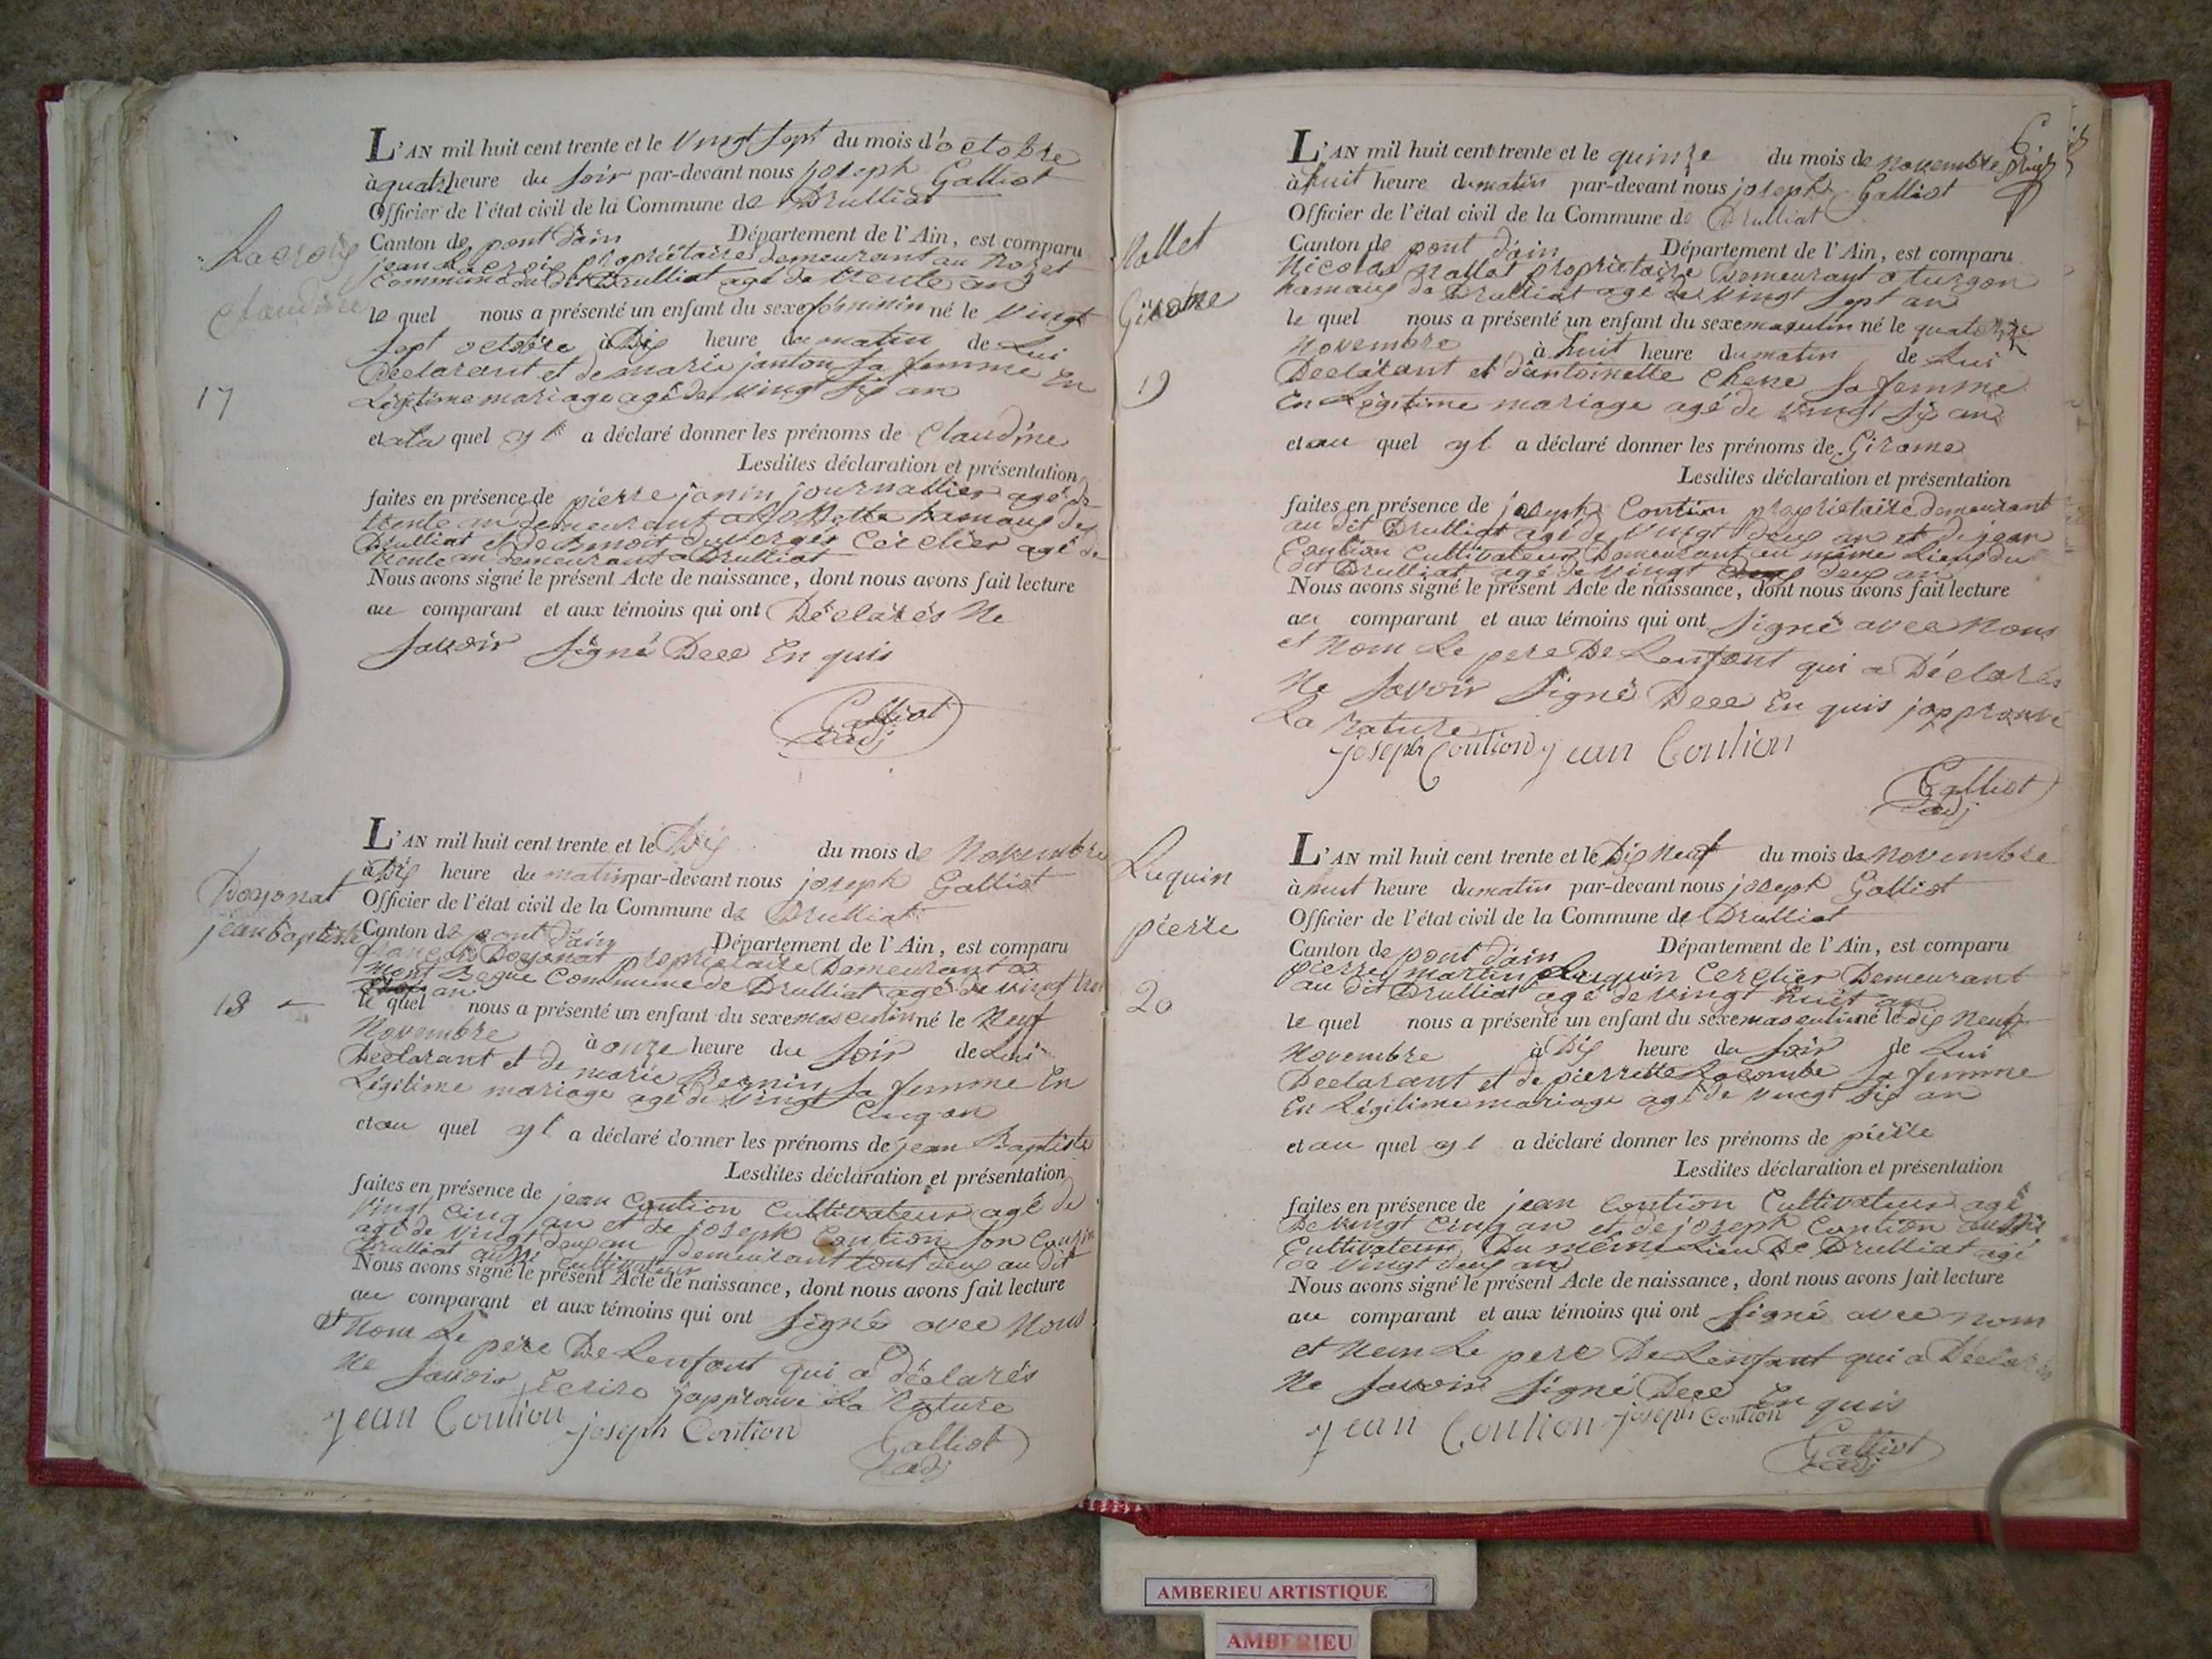 Lacroix
Claudine
17
L'AN mil huit cent trente et le vingt sept du mois d'octobre
à quatre heure du soir par-devant nous joseph Galliot
Officier de l'état civil de la Commune de Drulliat
Canton de pont d'ain Département de l'Ain, est comparu
jean Lacroix propriétaire demeurant au
commune du dit Drulliat agé de trente an
le quel nous a présenté un enfant du sexe féminin né le vingt
sept octobre à Dix heure du matin de Lui
Déclarant et de marie janton sa femme En
Légitime mariage agé de vingt six an
et a la quel yl a déclaré donner les prénoms de Claudine
Lesdites déclaration et présentation
faites en présence de pierre janin journallier agé de
trente an demeurant a hamaux de
Drulliat et de Benoit Cerclier agé de
trente an demeurant a Drulliat
Nous avons signé le présent Acte de naissance, dont nous avons fait lecture
au comparant et aux témoins qui ont Déclarés Ne
savoir signé Dece En quis
Galliot
adj
Doyonat
jean baptiste
18
L'AN mil huit cent trente et le Dix du mois de Novembre
à Dix heure du matin par-devant nous joseph Galliot
Officier de l'état civil de la Commune de Drulliat
Canton de pont d'ain Département de l'Ain, est comparu
françois Doyonat propriétaire Demeurant a
mont Begue Commune de Drulliat agé de vingt trois
an
le quel nous a présenté un enfant du sexe masculin né le Neuf
Novembre à onze heure du soir de Lui
Déclarant et de marie Bernin sa femme En
Légitime mariage agé de vingt Cinq an
et au quel yl a déclaré donner les prénoms de jean Baptiste
Lesdites déclaration et présentation
faites en présence de jean Coution Cultivateur agé de
vingt cinq an et de joseph Coution son Cousin
agé de vingt deux an demeurant tout deux au dit
Drulliat aussi cultivateur
Nous avons signé le présent Acte de naissance, dont nous avons fait lecture
au comparant et aux témoins qui ont signé avec Nous
et Nom Le pere De Lenfant qui a déclarés
Ne savoir Ecrire japprouve La Rature
jean Coution joseph Coution
Galliot
adj
6
Mallet
Girome
19
L'AN mil huit cent trente et le quinze du mois de novembre
à huit heure du matin par-devant nous joseph Galliot
Officier de l'état civil de la Commune de Drulliat
Canton de pont d'ain Département de l'Ain, est comparu
Nicolas Mallet propriétaire Demeurant a turgon
hamaux de Drulliat agé de vingt sept an
le quel nous a présenté un enfant du sexe masculin né le quatorze
Novembre à huit heure du matin de Lui
Déclarant et d'antoinette Chene sa femme
En Légitime mariage agé de vingt six an
et au quel yl a déclaré donner les prénoms de Girome
Lesdites déclaration et présentation
faites en présence de joseph Coution propriétaire demeurant
au dit Drulliat agé de vingt deux an et de jean
Coution Cultivateur Demeurant au même Lieux du
dit Drulliat agé de vingt deux an
Nous avons signé le présent Acte de naissance, dont nous avons fait lecture
au comparant et aux témoins qui ont signé avec Nous
et Nom Le pere De Lenfant qui a Déclarés
Ne savoir signé Dece En quis japprouve
La Rature
joseph Coution jean Coution
Galliot
adj
Luquin
pierre
20
L'AN mil huit cent trente et le Dix Neuf du mois de Novembre
à huit heure du matin par-devant nous joseph Galliot
Officier de l'état civil de la Commune de Drulliat
Canton de pont d'ain Département de l'Ain, est comparu
pierre martin Luquin Cerclier Demeurant
au dit Drulliat agé de vingt huit an
le quel nous a présenté un enfant du sexe masculin né le dix Neuf
Novembre à Dix heure du soir de Lui
Déclarant et de pierrette Lacombe sa femme
En Légitime mariage agé de vingt six an
et au quel yl a déclaré donner les prénoms de pierre
Lesdites déclaration et présentation
faites en présence de jean Coution Cultivateur agé
De vingt Cinq an et de joseph Coution aussi
Cultivateur Du même Lieu De Drulliat agé
de vingt deux an
Nous avons signé le présent Acte de naissance, dont nous avons fait lecture
au comparant et aux témoins qui ont signé avec nom
et Nom Le pere De Lenfant qui a Déclarés
Ne savoir signé Dece En quis
jean Coution joseph Coution
Galliot
adj
AMBERIEU ARTISTIQUE
AMBERIEU